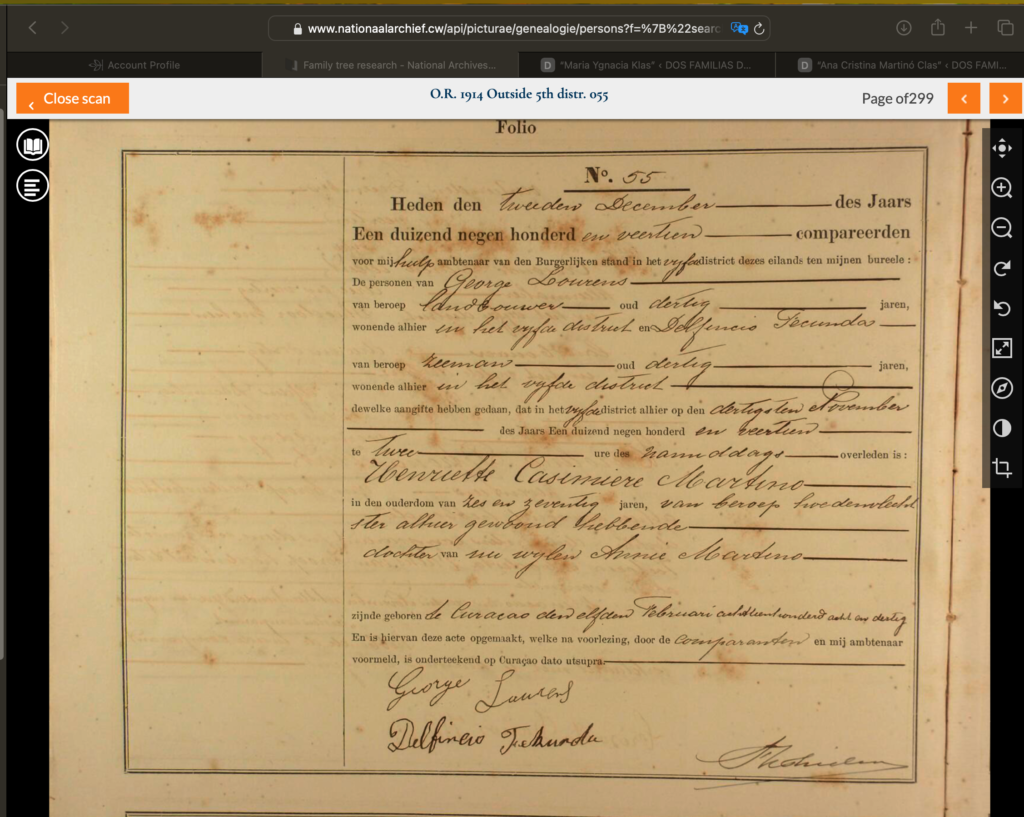 www.nationaalarchief.cw/api/picturae/genealogie/persons?f=%7B%22searc
Account Profile
Family tree research - National Archives...
D "Maria Ygnacia Klas" ‹ DOS FAMILIAS D...
D "Ana Cristina Martinó Clas" ‹ DOS FAMI...
‹ Close scan
O.R. 1914 Outside 5th distr. 055
Page of299
Folio
No. 55
Heden den tweeden December des Jaars
Een duizend negen honderd en veertien compareerden
voor mij hulp ambtenaar van den Burgerlijken stand in het vyfde district dezes eilands ten mijnen bureele :
De personen van George Lourens
van beroep landbouwer oud dertig jaren,
wonende alhier in het vyfde district en Delfincio Fecunda
van beroep zeeman oud dertig jaren,
wonende alhier in het vyfde district
dewelke aangifte hebben gedaan, dat in het vyfde district alhier op den dertigsten November
des Jaars Een duizend negen honderd en veertien
te twee ure des namiddags overleden is :
Henriette Casimiere Martino
in den ouderdom van zes en zeventig jaren, van beroep hoedenvlecht
ster alhier gewoond hebbende
dochter van nu wylen Annie Martino
zijnde geboren te Curaçao den elfden Februari achttienhonderd acht en dertig
En is hiervan deze acte opgemaakt, welke na voorlezing, door de comparanten en mij ambtenaar
voormeld, is onderteekend op Curaçao dato utsupra.
George Laurens
Delfincio Fekunda